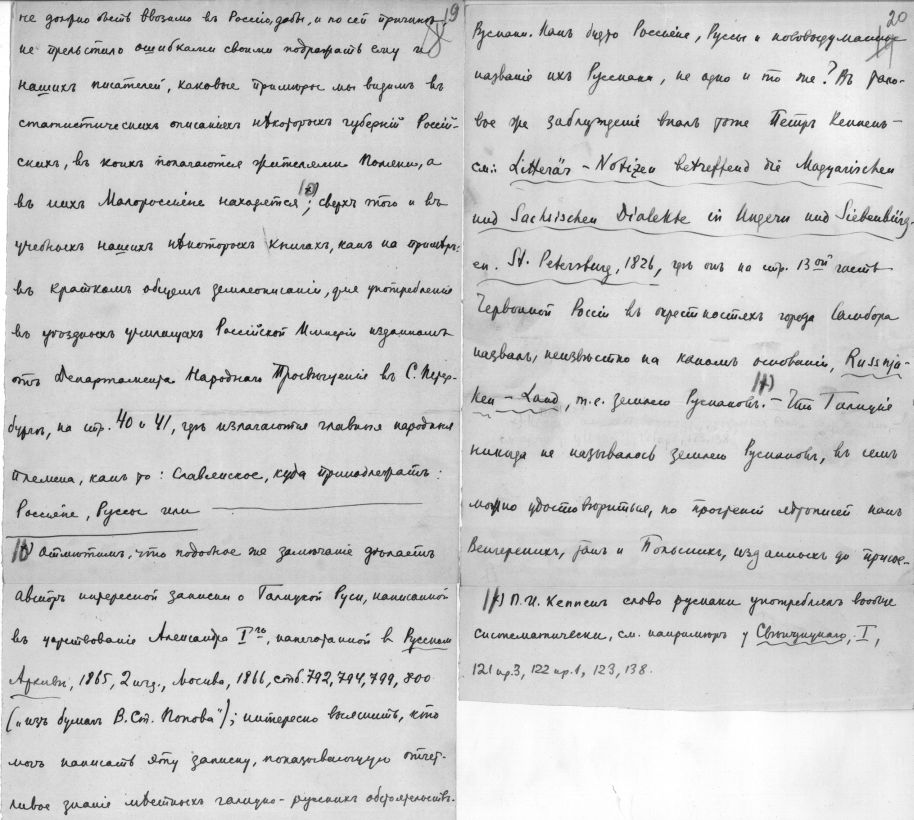 19
не должно быть ввозимо въ Россію, дабы, и по сей причинѣ
не прельстило ошибками своими подражать ему и
нашихъ писателей, каковые примѣры мы видимъ въ
статистическихъ описаніяхъ нѣкоторыхъ губерній Россій-
скихъ, въ коихъ полагаются жителями Поляки, а
въ нихъ Малороссіяне находятся; сверхъ того и въ
учебныхъ нашихъ нѣкоторыхъ книгахъ, какъ на примѣръ:
въ краткомъ общемъ землеописаніи, для употребленія
въ уѣздныхъ училищахъ Россійской Имперіи изданномъ
отъ Департамента Народнаго Просвѣщенія въ С. Петер-
бургѣ, на стр. 40 и 41, гдѣ излагаются главныя народныя
племена, какъ то: Славянское, куда принадлежатъ:
Россіяне, Руссы или
10) Отмѣтимъ, что подобное же замѣчаніе дѣлаетъ
авторъ интересной записки о Галицкой Руси, написанной
въ царствованіе Александра I го, напечатанной въ Русскомъ
Архивѣ, 1865, 2 изд., Москва, 1866, стб. 792, 794, 799, 800
("изъ бумагъ В. Ст. Попова"); интересно выяснить, кто
могъ написать эту записку, показывающую отчет-
ливое знаніе мѣстныхъ галицко-русскихъ обстоятельствъ.
20
Русняки. Какъ будто Россіяне, Руссы и нововыдуманное
названіе ихъ Русняки, не одно и то же? Въ тако-
вое же заблужденіе впалъ тоже Петръ Кеппенъ –
см: Litterär – Notizen betreffend die Magyarischen
und Sachsischen Dialekte in Ungern und Siebenbürg-
en. St. Petersburg, 1826, гдѣ онъ на стр. 13 ой часть
Червонной Россіи въ окрестностяхъ города Самбора
назвалъ, неизвѣстно на какомъ основаніи, Russnja-
ken – Land, т.е. землею Русняковъ. 11) – Что Галиція
никогда не называлась землею Русняковъ, въ семъ
можно удостовѣриться, по прочтеніи лѣтописей какъ
Венгерскихъ, такъ и Польскихъ, изданныхъ до присое-
11) П. И. Кеппенъ слово русняки употреблялъ вообще
систематически, см. напримѣръ у Свѣнцицкаго, I,
121 пр. 3, 122 пр. 1, 123, 138.